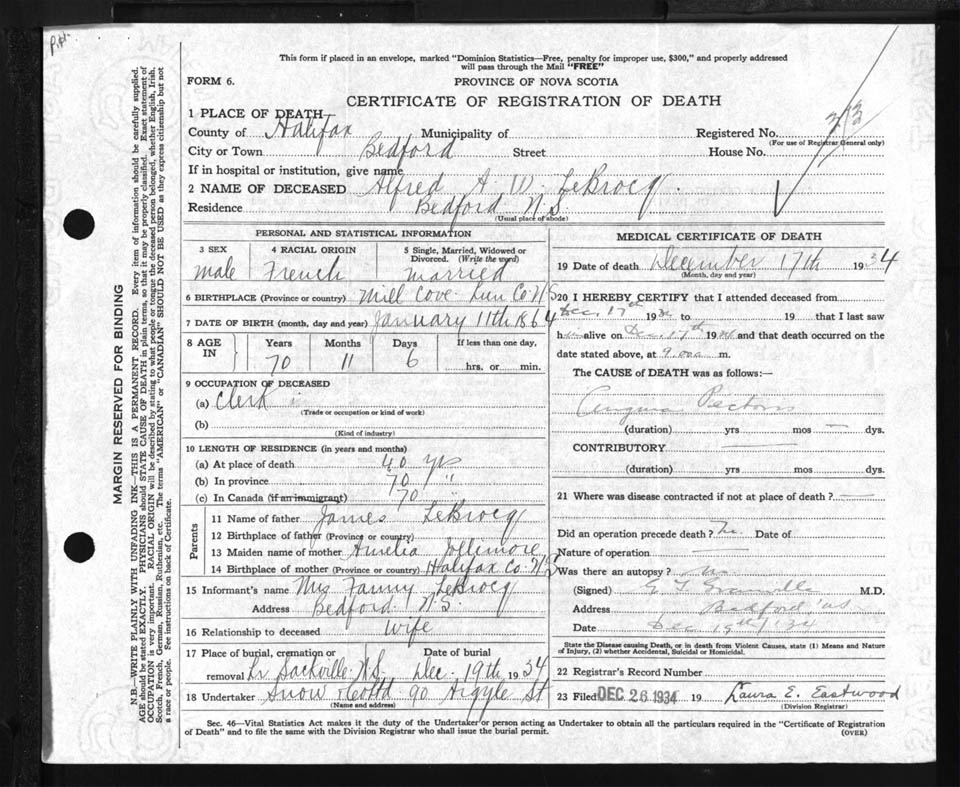 P.H.
This form if placed in an envelope, marked "Dominion Statistics—Free, penalty for improper use, $300," and properly addressed
will pass through the Mail "FREE"
FORM 6.
PROVINCE OF NOVA SCOTIA
CERTIFICATE OF REGISTRATION OF DEATH
1 PLACE OF DEATH
County of Halifax Municipality of Registered No.
(For use of Registrar General only)
City or Town Bedford Street House No.
If in hospital or institution, give name
2 NAME OF DECEASED Alfred A. W. LeBrocq.
Residence Bedford N.S.
(Usual place of abode)
PERSONAL AND STATISTICAL INFORMATION
3 SEX 4 RACIAL ORIGIN 5 Single, Married, Widowed or
Divorced. (Write the word)
male French married
6 BIRTHPLACE (Province or country) Mill Cove Lun Co. N.S
7 DATE OF BIRTH (month, day and year) January 11th 1864
8 AGE IN Years Months Days If less than one day,
70 11 6 hrs. or min.
9 OCCUPATION OF DECEASED
(a) Clerk
(Trade or occupation or kind of work)
(b)
(Kind of industry)
10 LENGTH OF RESIDENCE (in years and months)
(a) At place of death 40 yrs
(b) In province 70 "
(c) In Canada (if an immigrant) 70 "
Parents
11 Name of father James LeBrocq
12 Birthplace of father (Province or country)
13 Maiden name of mother Amelia Jollimore
14 Birthplace of mother (Province or country) Halifax Co. N.S
15 Informant's name Mrs Fanny LeBrocq
Address Bedford N.S.
16 Relationship to deceased wife
17 Place of burial, cremation or Date of burial
removal Lr Sackville N.S. Dec. 19th 1934
18 Undertaker Snow & Co Ltd 90 Argyle St
(Name and address)
MEDICAL CERTIFICATE OF DEATH
19 Date of death December 17th 1934
(Month, day and year)
20 I HEREBY CERTIFY that I attended deceased from
Dec. 17th 1934 to 19 that I last saw
h alive on Dec. 17th 1934 and that death occurred on the
date stated above, at 9. m.
The CAUSE of DEATH was as follows:—
Angina Pectoris
(duration) yrs mos — dys.
CONTRIBUTORY
(duration) yrs. mos dys.
21 Where was disease contracted if not at place of death?
Did an operation precede death? No. Date of
Nature of operation
Was there an autopsy? No
(Signed) M.D.
Address Bedford, N.S
Date Dec 19th/34
State the Disease causing Death, or in death from Violent Causes, state (1) Means and Nature
of Injury, (2) whether Accidental, Suicidal or Homicidal.
22 Registrar's Record Number
23 Filed DEC 26 1934 19 Laura E. Eastwood
(Division Registrar)
Sec. 46—Vital Statistics Act makes it the duty of the Undertaker or person acting as Undertaker to obtain all the particulars required in the "Certificate of Registration
of Death" and to file the same with the Division Registrar who shall issue the burial permit. (OVER)
MARGIN RESERVED FOR BINDING
N.B.—WRITE PLAINLY WITH UNFADING INK—THIS IS A PERMANENT RECORD. Every item of information should be carefully supplied.
AGE should be stated EXACTLY. PHYSICIANS should STATE CAUSE OF DEATH in plain terms, so that it may be properly classified. Exact statement of
OCCUPATION is very important. RACIAL ORIGIN will be described by stating to what people or tongue the deceased person belonged, whether English, Irish,
Scotch, French, German, Russian, Ruthenian, etc. The terms "AMERICAN" or "CANADIAN" SHOULD NOT BE USED as they express citizenship but not
a race or people. See instructions on back of Certificate.